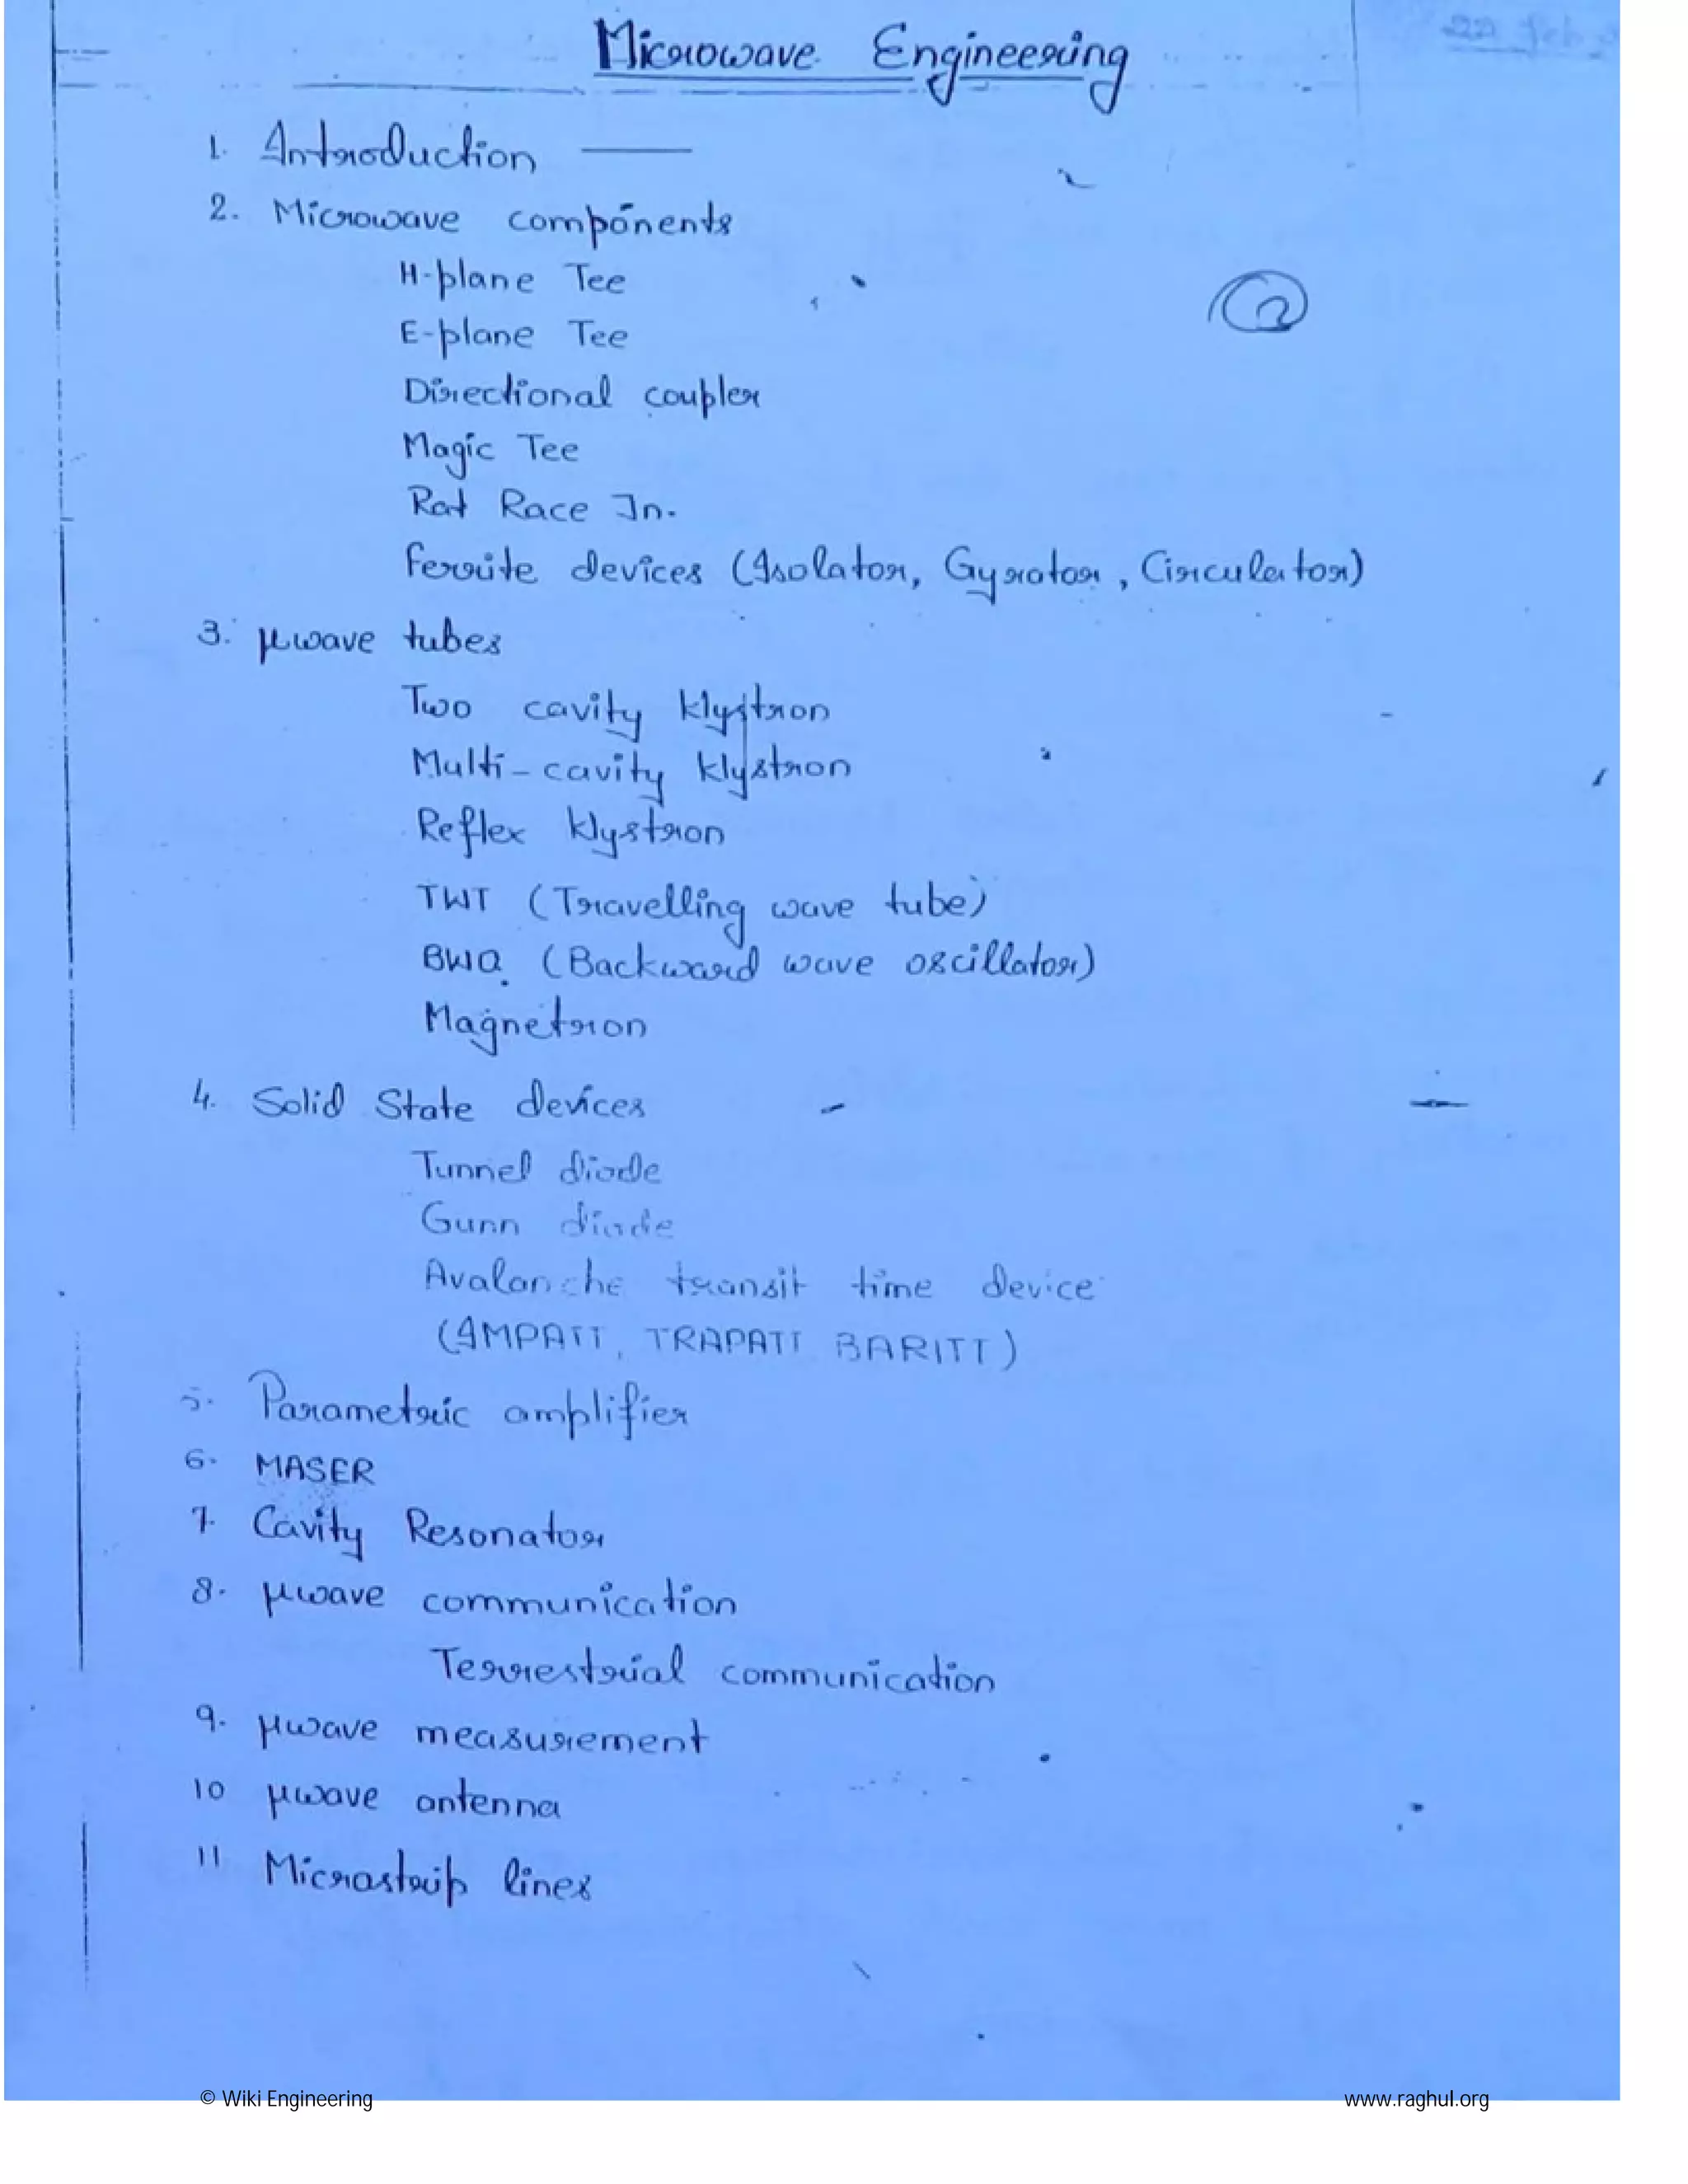 22 Feb
Microwave Engineering
1. Introduction ——
2. Microwave components
H-plane Tee
②
E-plane Tee
Directional coupler
Magic Tee
Rat Race Jn.
Ferrite devices (Isolator, Gyrator, Circulator)
3. μwave tubes
Two cavity klystron
Multi-cavity klystron
Reflex klystron
TWT (Travelling wave tube)
BWO (Backward wave oscillator)
Magnetron
4. Solid State devices
Tunnel diode
Gunn diode
Avalanche transit time device
(IMPATT, TRAPATT BARITT)
5. Parametric amplifier
6. MASER
7. Cavity Resonator
8. μwave communication
Terrestrial communication
9. μwave measurement
10 μwave antenna
11 Microstrip lines
© Wiki Engineering
www.raghul.org